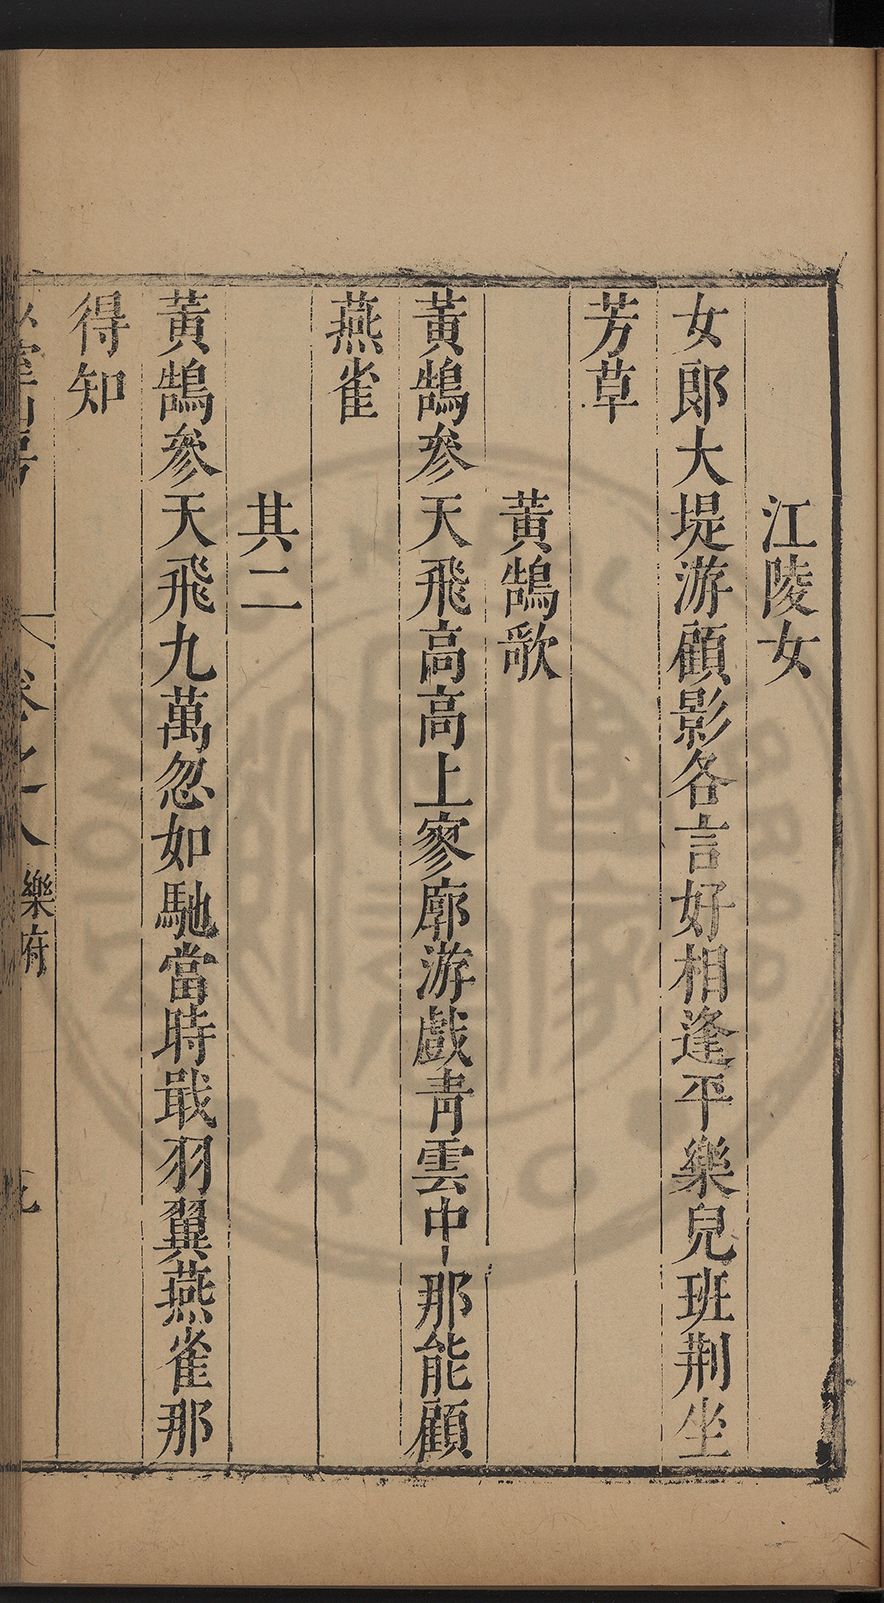 江陵女
女郞大堤游顧影各言好相逢平樂兒班荆坐
芳草
黃鵠歌
黃鵠參天飛高高上寥廓游戲靑雲中那能顧
燕雀
其二
黃鵠參天飛九萬忽如馳當時戢羽翼燕雀那
得知
卷之十八 樂府